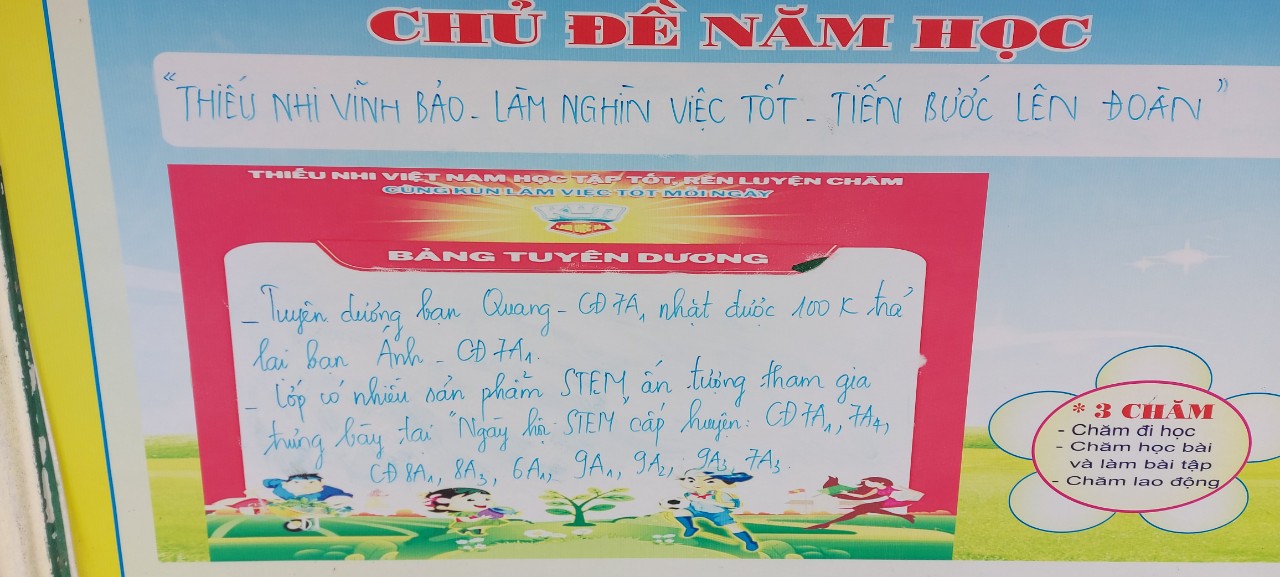 CHỦ ĐỀ NĂM HỌC
"THIẾU NHI VĨNH BẢO - LÀM NGHÌN VIỆC TỐT - TIẾN BƯỚC LÊN ĐOÀN"
THIẾU NHI VIỆT NAM HỌC TẬP TỐT, RÈN LUYỆN CHĂM
CÙNG KUN LÀM VIỆC TỐT MỖI NGÀY
KUN
LÀM VIỆC TỐT
BẢNG TUYÊN DƯƠNG
- Tuyên dương bạn Quang - CĐ 7A1 nhặt được 100 K trả
lại bạn Ánh - CĐ 7A1.
- Lớp có nhiều sản phẩm STEM, ấn tượng tham gia
trưng bày tại "Ngày hội STEM" cấp huyện: CĐ 7A1, 7A4,
CĐ 8A1, 8A3, 6A1, 9A1, 9A2, 9A3, 7A3.
* 3 CHĂM
- Chăm đi học
- Chăm học bài
và làm bài tập
- Chăm lao động